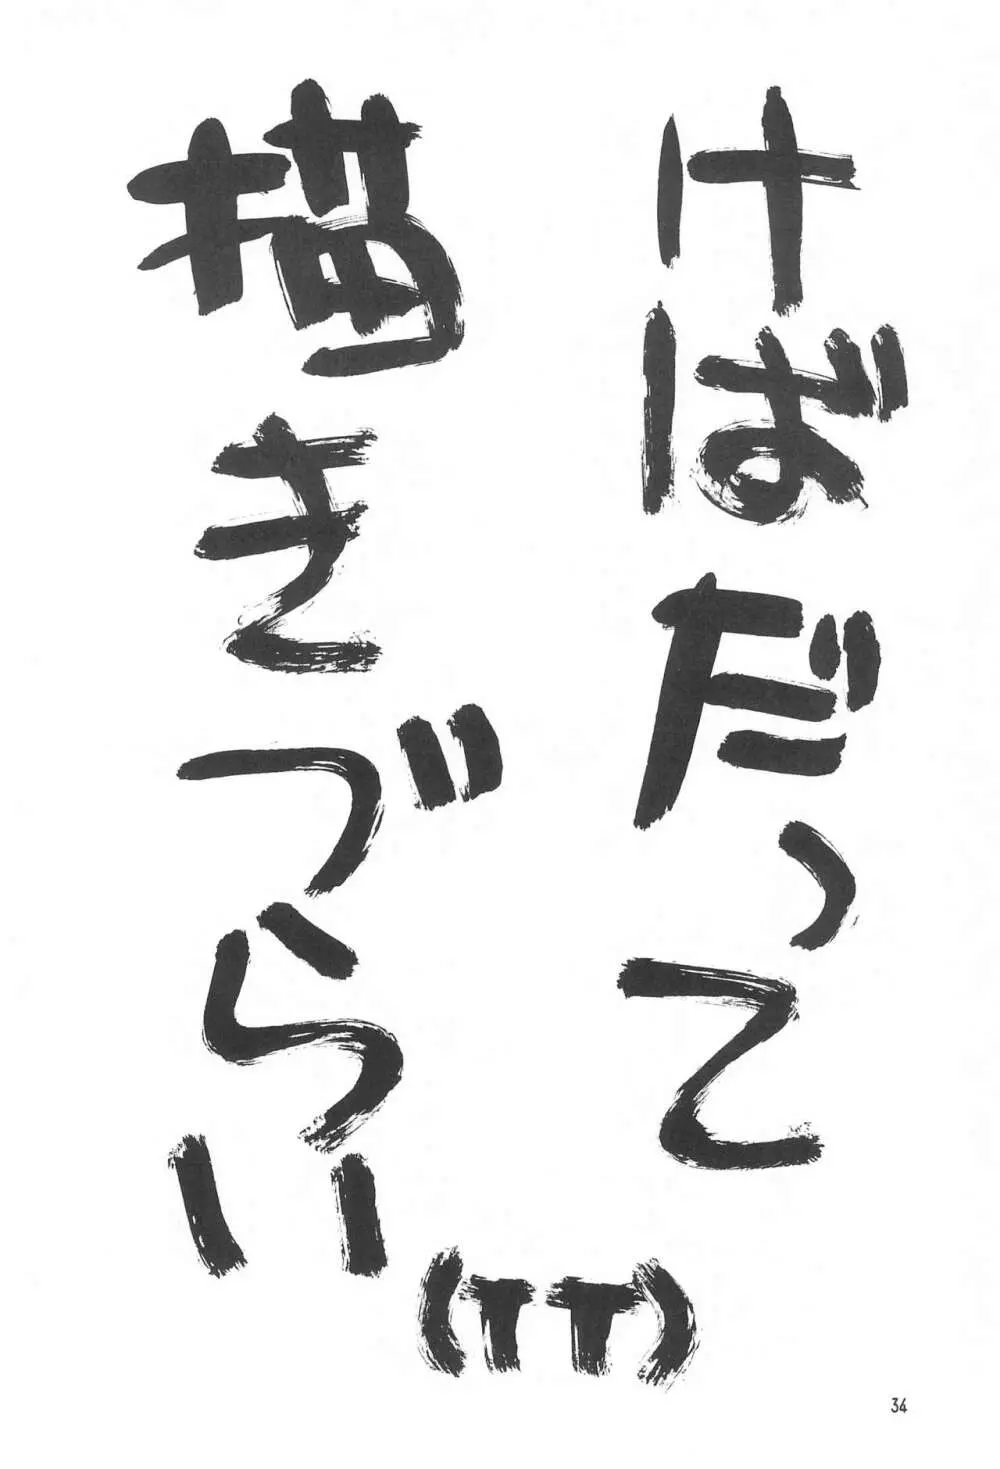 けばだって
描きづらい
(TT)
34